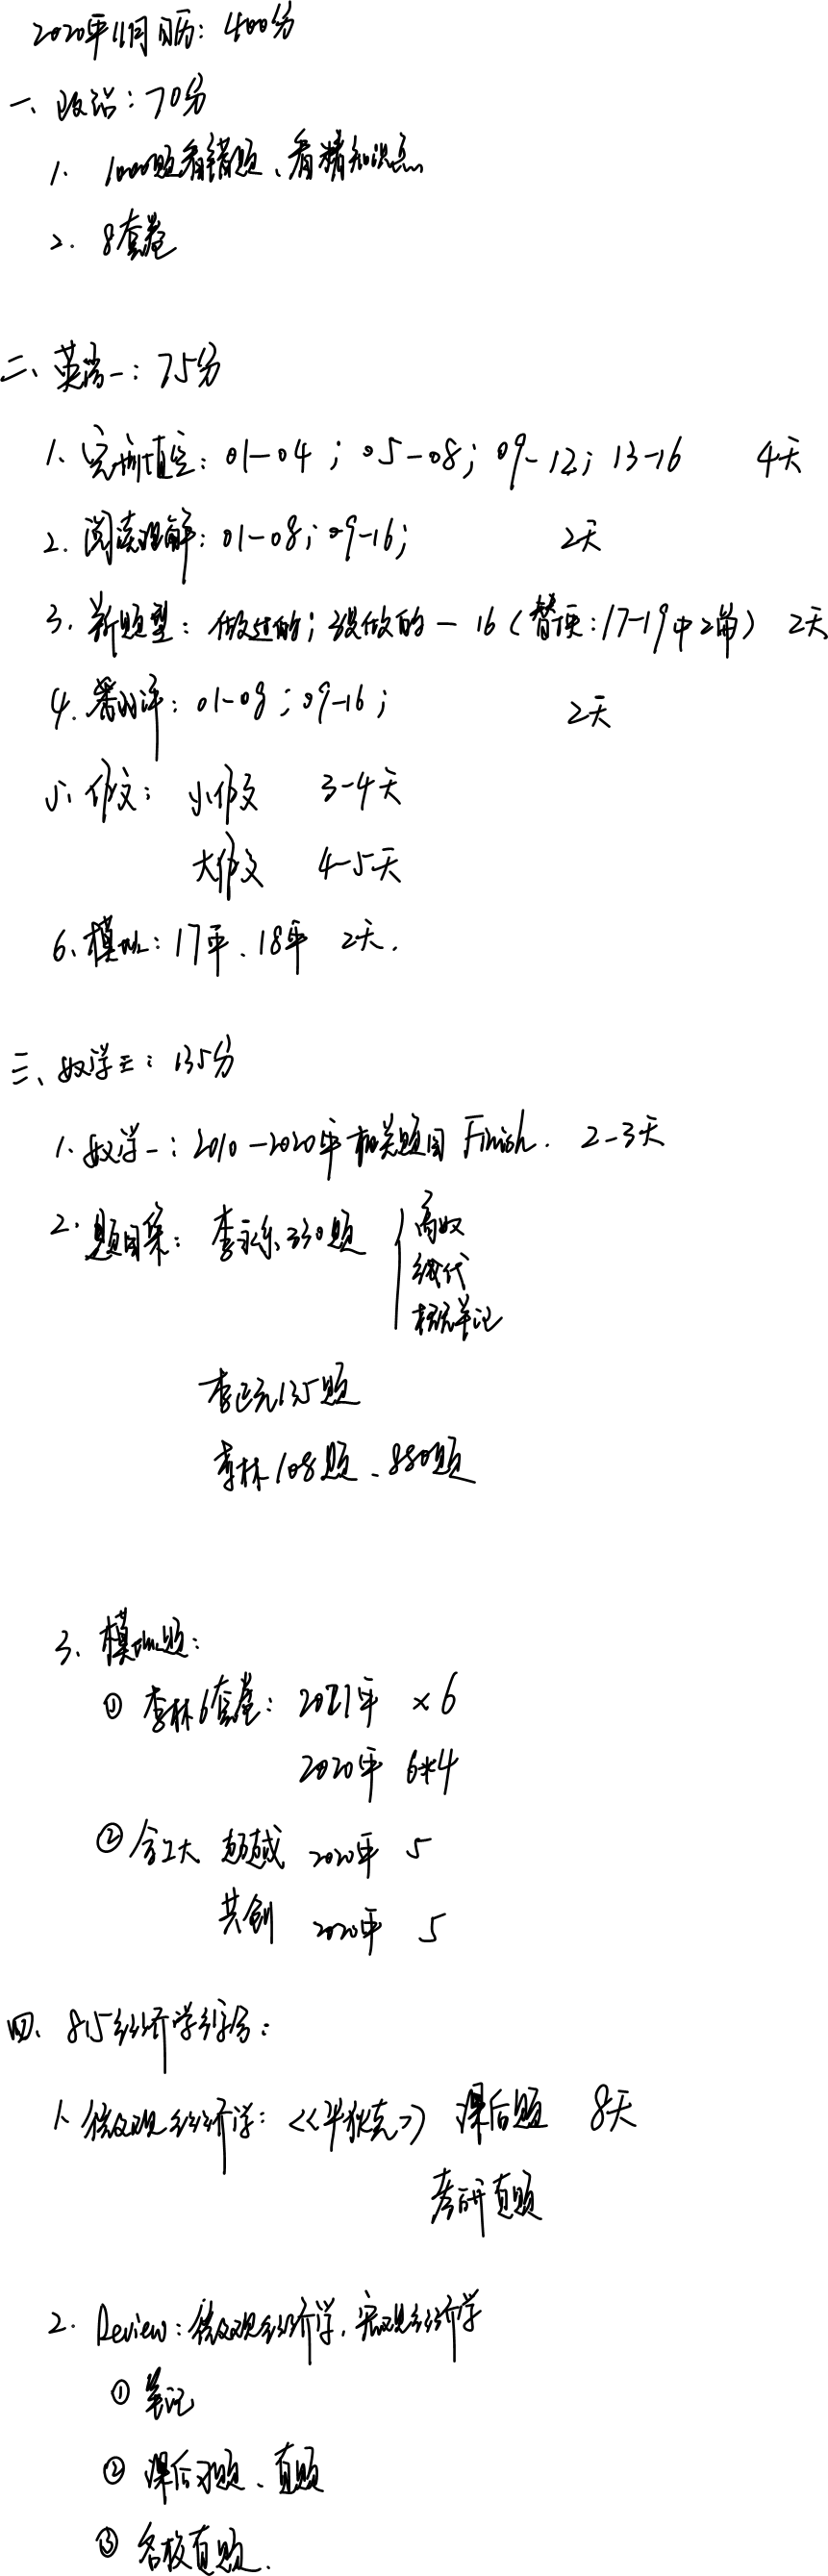 2020年11月日历：400分
一、政治：70分
1. 1000题看错题、看精知识点
2. 8套卷
二、英语一：75分
1、完形填空：01—04；05—08；09—12；13—16 4天
2. 阅读理解：01—08；09—16； 2天
3. 新题型：做过的；没做的—16（替更：17—19中2篇） 2天
4. 翻译：01—08；09—16； 2天
5、作文：小作文 3-4天
大作文 4-5天
6、模拟：17年、18年 2天.
三、数学三：135分
1. 数学一：2010—2020年相关题目 Finish. 2-3天
2. 题目集：李永乐330题 高数
线代
概统笔记
李正元135题
李林108题、880题
3、模拟题：
① 李林6套卷：2021年 ×6
2020年 6*4
② 合工大 超越 2020年 5
共创 2020年 5
四、815经济学综合：
1、微观经济学：<<平狄克>> 课后题 8天
考研真题
2. Review：微观经济学，宏观经济学
① 笔记
② 课后习题、真题
③ 名校真题.